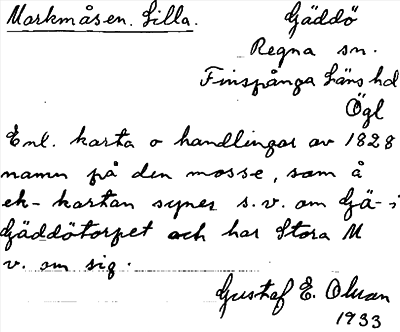 Markmåsen. Lilla.
Gäddö
Regna sn.
Finspånga Läns hd
Ögl
Enl. karta o handlingar av 1828
namn på den mosse, som å
ek-kartan synes s.v. om Gä- i
Gäddötorpet och har Stora M
v. om sig.
Gustaf E. Olman
1933